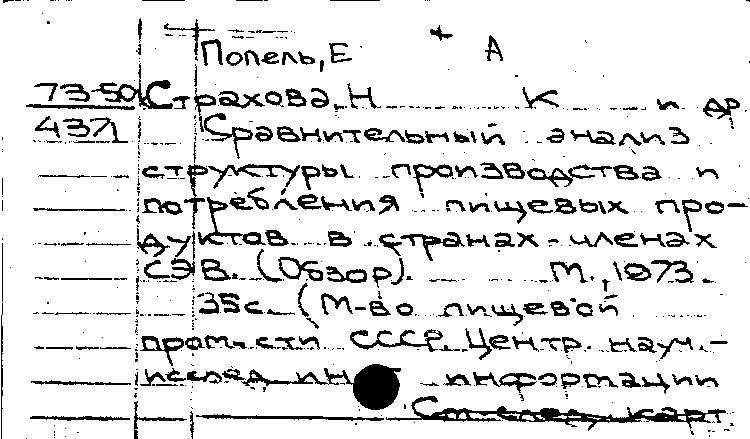 Попель, Е + А
73-50 Страхова, Н К и др
4371 Сравнительный анализ
структуры производства и
потребления пищевых про-
дуктов в странах-членах
СЭВ. (Обзор). М., 1973.
35с. (М-во пищевой
пром-сти СССР. Центр. науч.-
исслед ин-т информации
См след. карт.